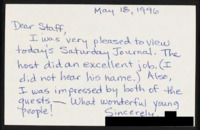 May 18, 1996
Dear Staff,
I was very pleased to view
today's Saturday Journal. The
host did an excellent job. (I
did not hear his name.) Also,
I was impressed by both of the
guests — What wonderful young
people! Sincerely